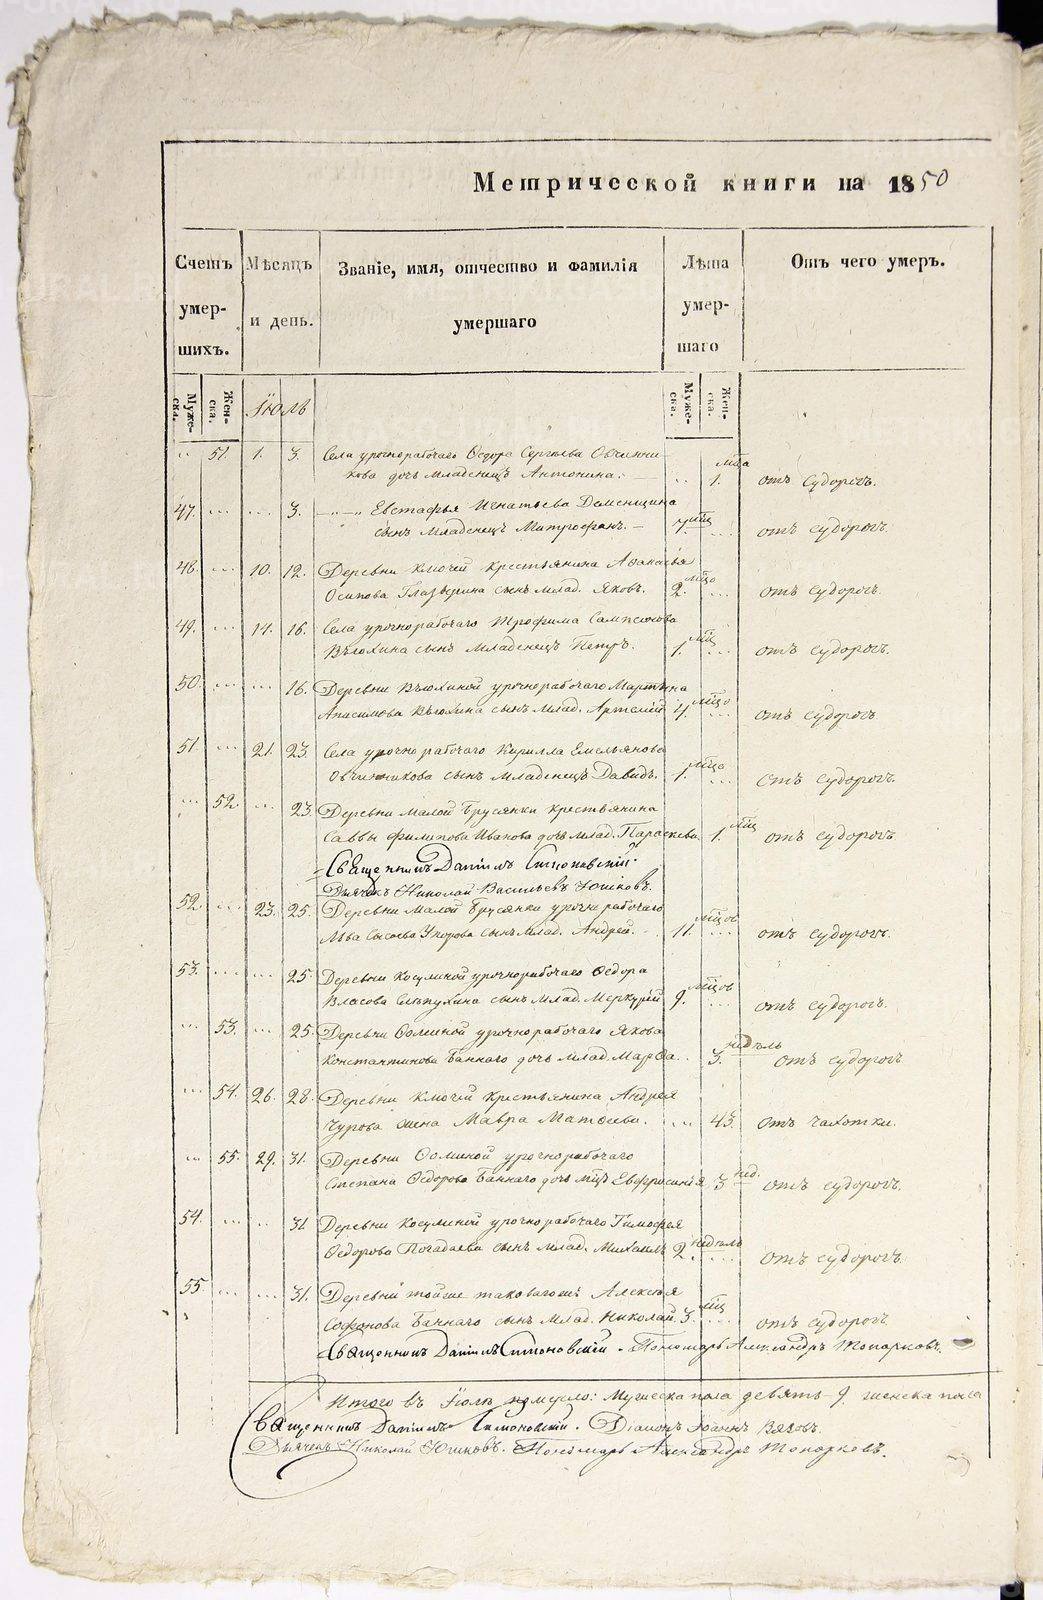 Метрической книги на 1850
Счетъ умершихъ.
Мѣсяцъ и день.
Званіе, имя, отчество и фамилія умершаго
Лѣта умершаго
Отъ чего умеръ.
Мужеска. Женска. Іюль Мужеска. Женска.
51. 1. 3. Села урочнорабочаго Ѳедора Сергѣева Овчинни-
кова дочь младенецъ Антонина. 1. мца отъ судорогъ.
47. 3. Евстафья Игнатьева Деменщина
сынъ младенецъ Митрофанъ. 7. мцъ отъ судорогъ
48. 10. 12. Деревни Ключей крестьянина Аѳанасья
Осипова Глазырина сынъ млад. Яковъ. 2. мцо отъ судорогъ.
49. 14. 16. Села урочнорабочаго Трофима Сампсонова
Вьюхина сынъ младенецъ Петръ. 1. мцъ отъ судорогъ.
50. 16. Деревни Вьюхиной урочнорабочаго Мартына
Анисимова Вьюхина сынъ млад. Артемій 4. мцо отъ судорогъ
51. 21. 23. Села урочнорабочаго Кирилла Емельянова
Овчинникова сынъ младенецъ Давидъ. 1. мца отъ судорогъ.
52. 23. Деревни Малой Брусянки крестьянина
Саввы Филипова Иванова дочь млад. Параскева 1. мцъ отъ судорогъ
Священникъ Даніилъ Симоновскій.
Дьячекъ Николай Васильевъ Юшковъ.
52. 23. 25. Деревни Малой Брусянки урочнорабочаго
Льва Сысоева Упорова сынъ млад. Андрей. 11. мцовъ отъ судорогъ.
53. 25. Деревни Косулиной урочнорабочаго Ѳедора
Власова Слѣпухина сынъ млад. Меркурій 9. мцовъ отъ судорогъ.
53. 25. Деревни Ѳоминой урочнорабочаго Якова
Константинова Баннаго дочь млад. Марѳа. 3. недѣль отъ судорогъ
54. 26. 28. Деревни Ключей крестьянина Андрея
Чурова жена Мавра Матѳеева. 43. отъ чахотки.
55. 29. 31. Деревни Ѳоминой урочнорабочаго
Степана Ѳедорова Баннаго дочь мцъ Евфросинія 3 нед. отъ судорогъ.
54. 31. Деревни Косулиной урочнорабочаго Тимофея
Ѳедорова Погадаева сынъ млад. Михаилъ 2. недѣль отъ судорогъ.
55. 31. Деревни тойже таковагожъ Алексѣя
Софонова Баннаго сынъ млад. Николай. 3. мцъ отъ судорогъ
Священникъ Даніилъ Симоновскій. Пономарь Александръ Топорковъ.
Итого въ Іюлѣ померло: Мужеска пола девять 9. женска пола
Священникъ Даніилъ Симоновскій. Діаконъ Іоаннъ
Дьячекъ Николай Юшковъ. Пономарь Александръ Топорковъ.